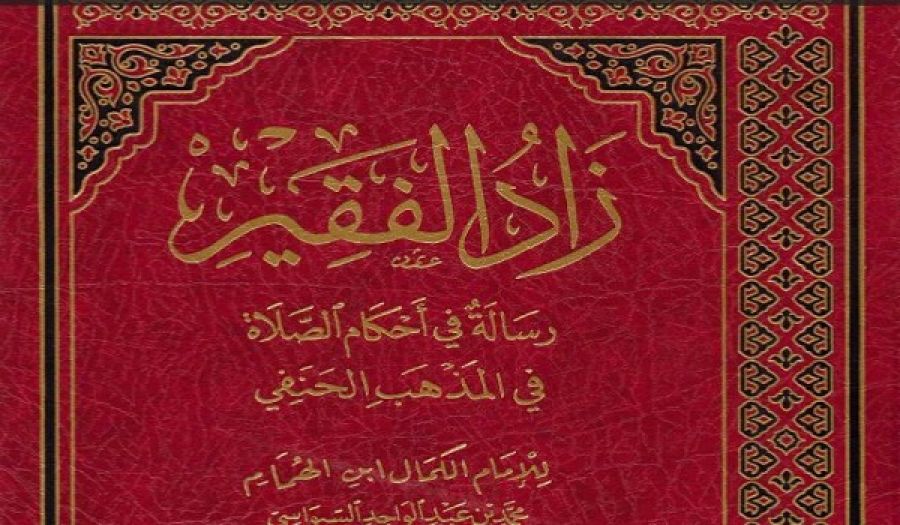 زَادُ الفَقِيْرِ
رِسَالَةٌ فِي أَحْكَامِ ٱلصَّلَاة
فِي المَذْهَبِ الحَنَفِي
لِلْإِمَامِ الكَمَال ابنِ الهُمَام
محمّد بن عَبْد الوَاحِد السِّيوَاسِي